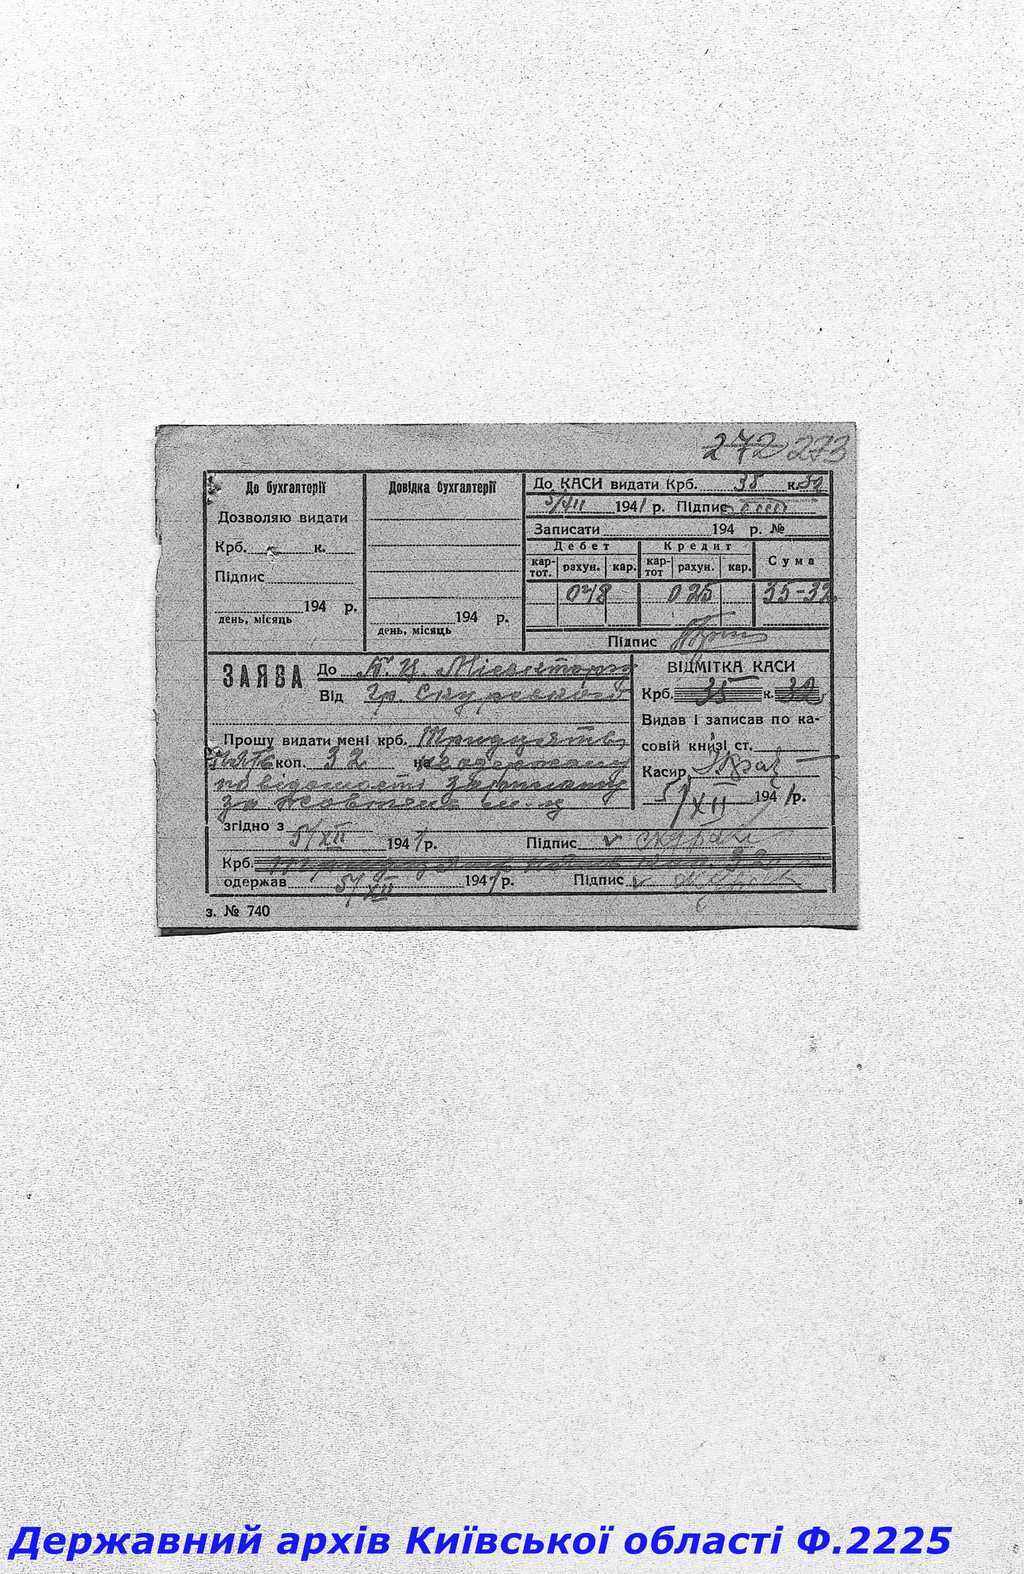 272 273
До бухгалтерії
Дозволяю видати
Крб. к.
Підпис
194 р.
день, місяць
Довідка бухгалтерії
194 р.
день, місяць
До КАСИ видати Крб. 35 к. 32
5/XII 1941 р. Підпис
Записати 194 р. №
Дебет Кредит Сума
кар-тот. рахун. кар. кар-тот рахун. кар.
048 025 35-32
Підпис
ЗАЯВА До
Від гр.
Прошу видати мені крб. Тридцять
п'ять коп. 32 неодержану
по відомості зарплату
за жовтень м-ц
згідно з
5/XII 1941 р. Підпис
Крб. 32
одержав 5/XII 1941 р. Підпис
ВІДМІТКА КАСИ
Крб. 35 к. 32
Видав і записав по ка-
совій книзі ст.
Касир
5/XII 1941 р.
з. № 740
Державний архів Київської області Ф.2225